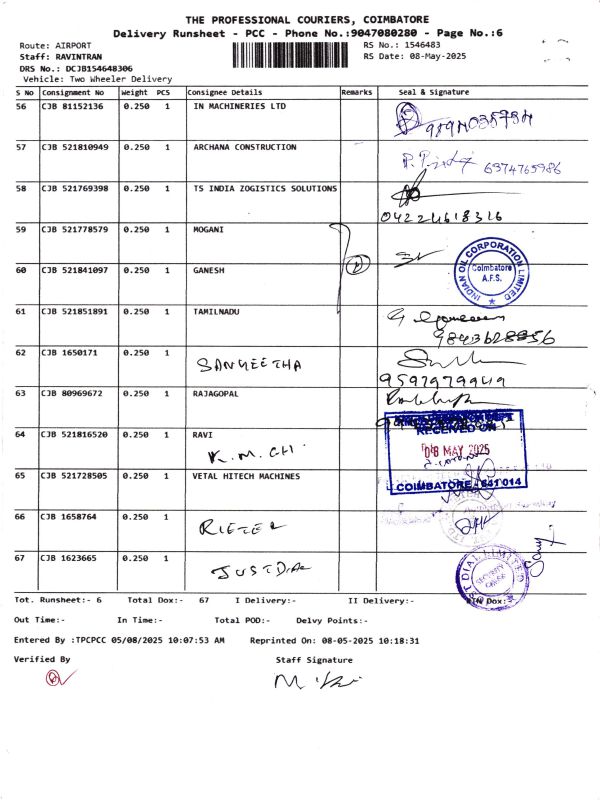 THE PROFESSIONAL COURIERS, COIMBATORE
Delivery Runsheet - PCC - Phone No.:9047080280 - Page No.:6
Route: AIRPORT RS No.: 1546483
Staff: RAVINTRAN RS Date: 08-May-2025
DRS No.: DCJB154648306
Vehicle: Two Wheeler Delivery
S No Consignment No Weight PCS Consignee Details Remarks Seal & Signature
56 CJB 81152136 0.250 1 IN MACHINERIES LTD
57 CJB 521810949 0.250 1 ARCHANA CONSTRUCTION
6374765986
58 CJB 521769398 0.250 1 TS INDIA ZOGISTICS SOLUTIONS
04224618326
59 CJB 521778579 0.250 1 MOGANI
60 CJB 521841097 0.250 1 GANESH
INDIAN OIL CORPORATION LIMITED
Coimbatore
A.F.S.
61 CJB 521851891 0.250 1 TAMILNADU
62 CJB 1650171 0.250 1 SANGEETHA
9597979949
63 CJB 80969672 0.250 1 RAJAGOPAL
64 CJB 521816520 0.250 1 RAVI
K.M.CH
RECEIVED ON
08 MAY 2025
COIMBATORE - 641 014
65 CJB 521728505 0.250 1 VETAL HITECH MACHINES
66 CJB 1658764 0.250 1
RIETER
67 CJB 1623665 0.250 1
JUSTDIAL
JUST DIAL LIMITED
SECURITY
Tot. Runsheet:- 6 Total Dox:- 67 I Delivery:- II Delivery:- Dox:-
Out Time:- In Time:- Total POD:- Delvy Points:-
Entered By :TPCPCC 05/08/2025 10:07:53 AM Reprinted On: 08-05-2025 10:18:31
Verified By Staff Signature